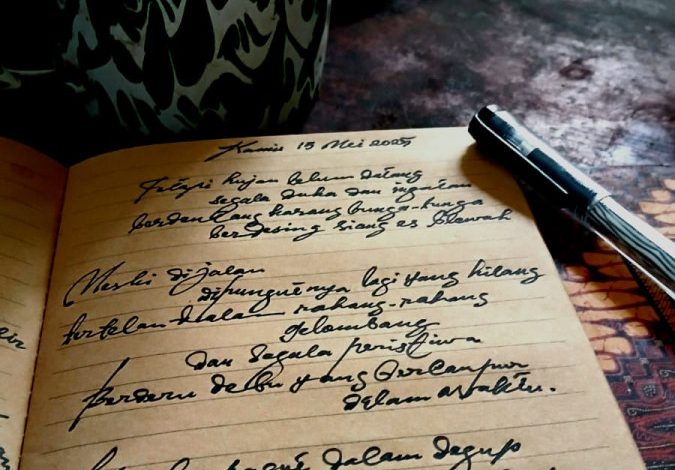 Kamis 15 Mei 2025
Tetapi hujan belum datang
segala duka dan ingatan
berdentang karang bunga-bunga
berdesing siang es blewah
Meski di jalan
dipungutnya lagi yang hilang
tertelan dalam rahang-rahang
gelombang
dan segala peristiwa
berderu debu yang
dalam waktu.
dalam degup